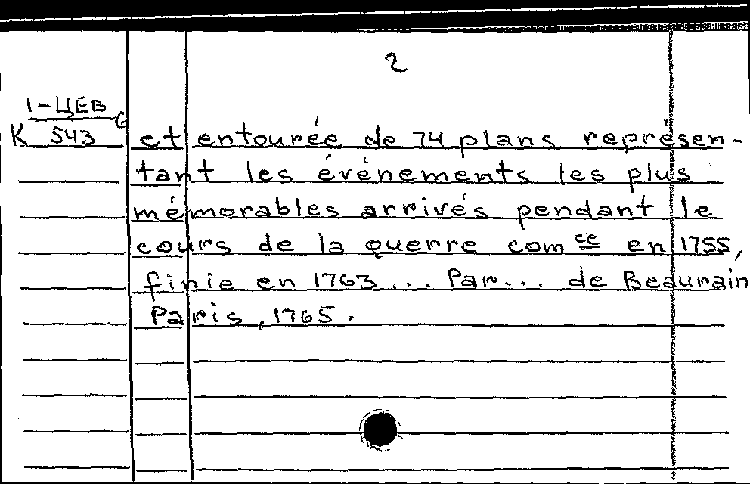 2
1-ЦЕВ
K 543
et entourée de 74 plans représen-
tant les événements les plus
mémorables arrivés pendant le
cours de la guerre com ce en 1755,
finie en 1763... Par... de Beaurain
Paris, 1765.